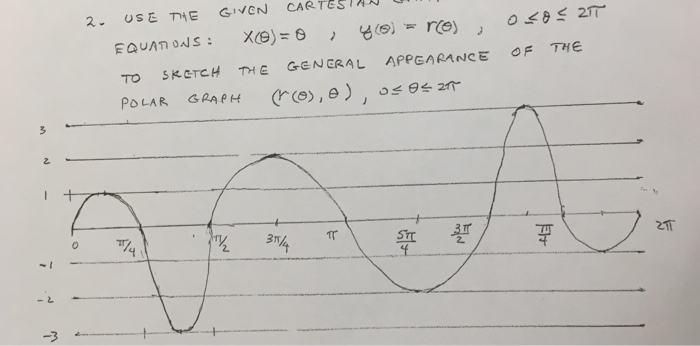 2. USE THE GIVEN CARTESIAN
EQUATIONS: X(θ) = θ , y(θ) = r(θ) , 0 ≤ θ ≤ 2π
TO SKETCH THE GENERAL APPEARANCE OF THE
POLAR GRAPH (r(θ), θ), 0 ≤ θ ≤ 2π
3
2
1
0 π/4 π/2 3π/4 π 5π/4 3π/2 7π/4 2π
-1
-2
-3